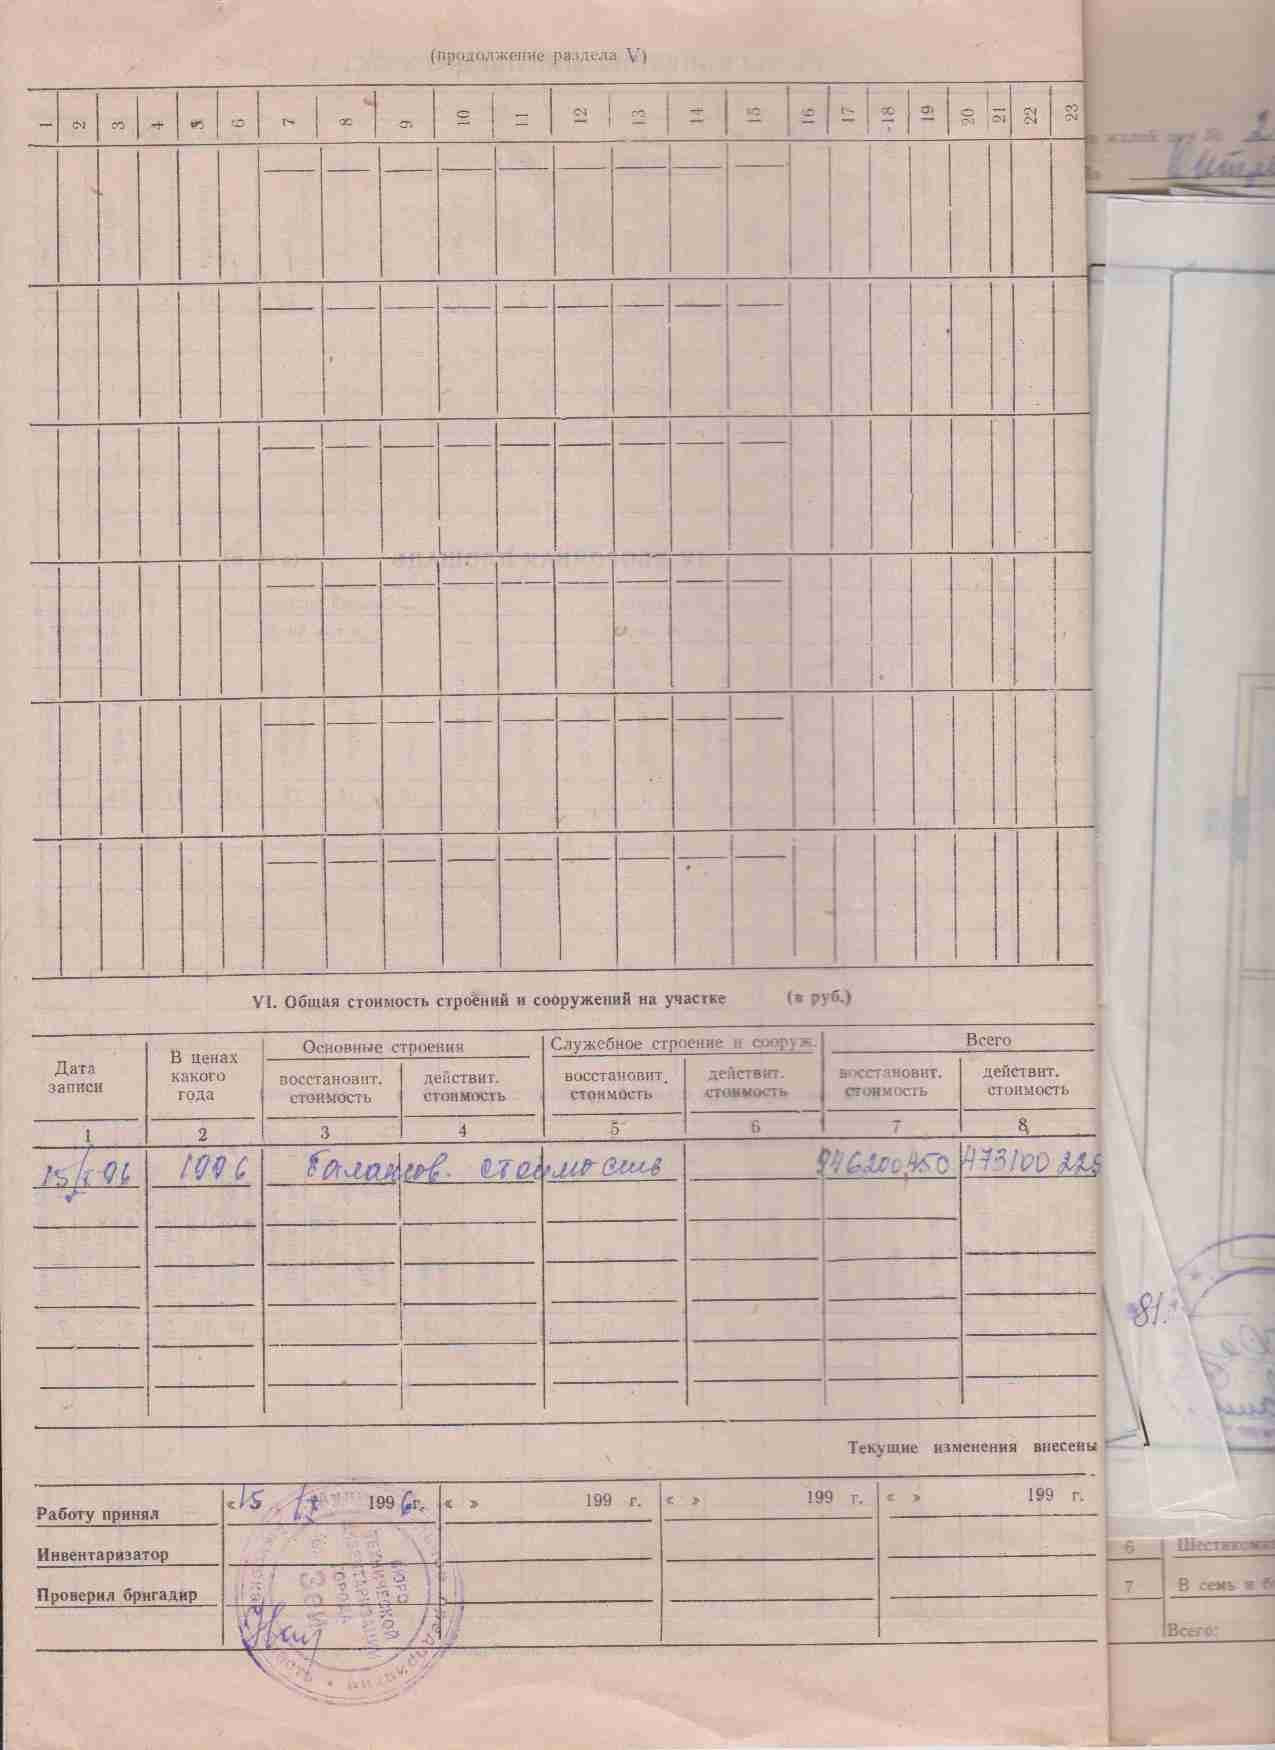 (продолжение раздела V)
1 2 3 4 5 6 7 8 9 10 11 12 13 14 15 16 17 18 19 20 21 22 23
VI. Общая стоимость строений и сооружений на участке (в руб.)
Дата записи
В ценах какого года
Основные строения
Служебное строение и сооруж.
Всего
восстановит. стоимость
действит. стоимость
восстановит. стоимость
действит. стоимость
восстановит. стоимость
действит. стоимость
1 2 3 4 5 6 7 8
15/X 96 1996 Балансов. стоимость 946200,450 473100 225
Текущие изменения внесены
Работу принял «15 IX 1996 г. « » 199 г. « » 199 г. « » 199 г.
Инвентаризатор
Проверил бригадир
БЮРО
ТЕХНИЧЕСКОЙ
ИНВЕНТАРИЗАЦИИ
ГОРОДА
81.
6
7 В семь и б
Всего: